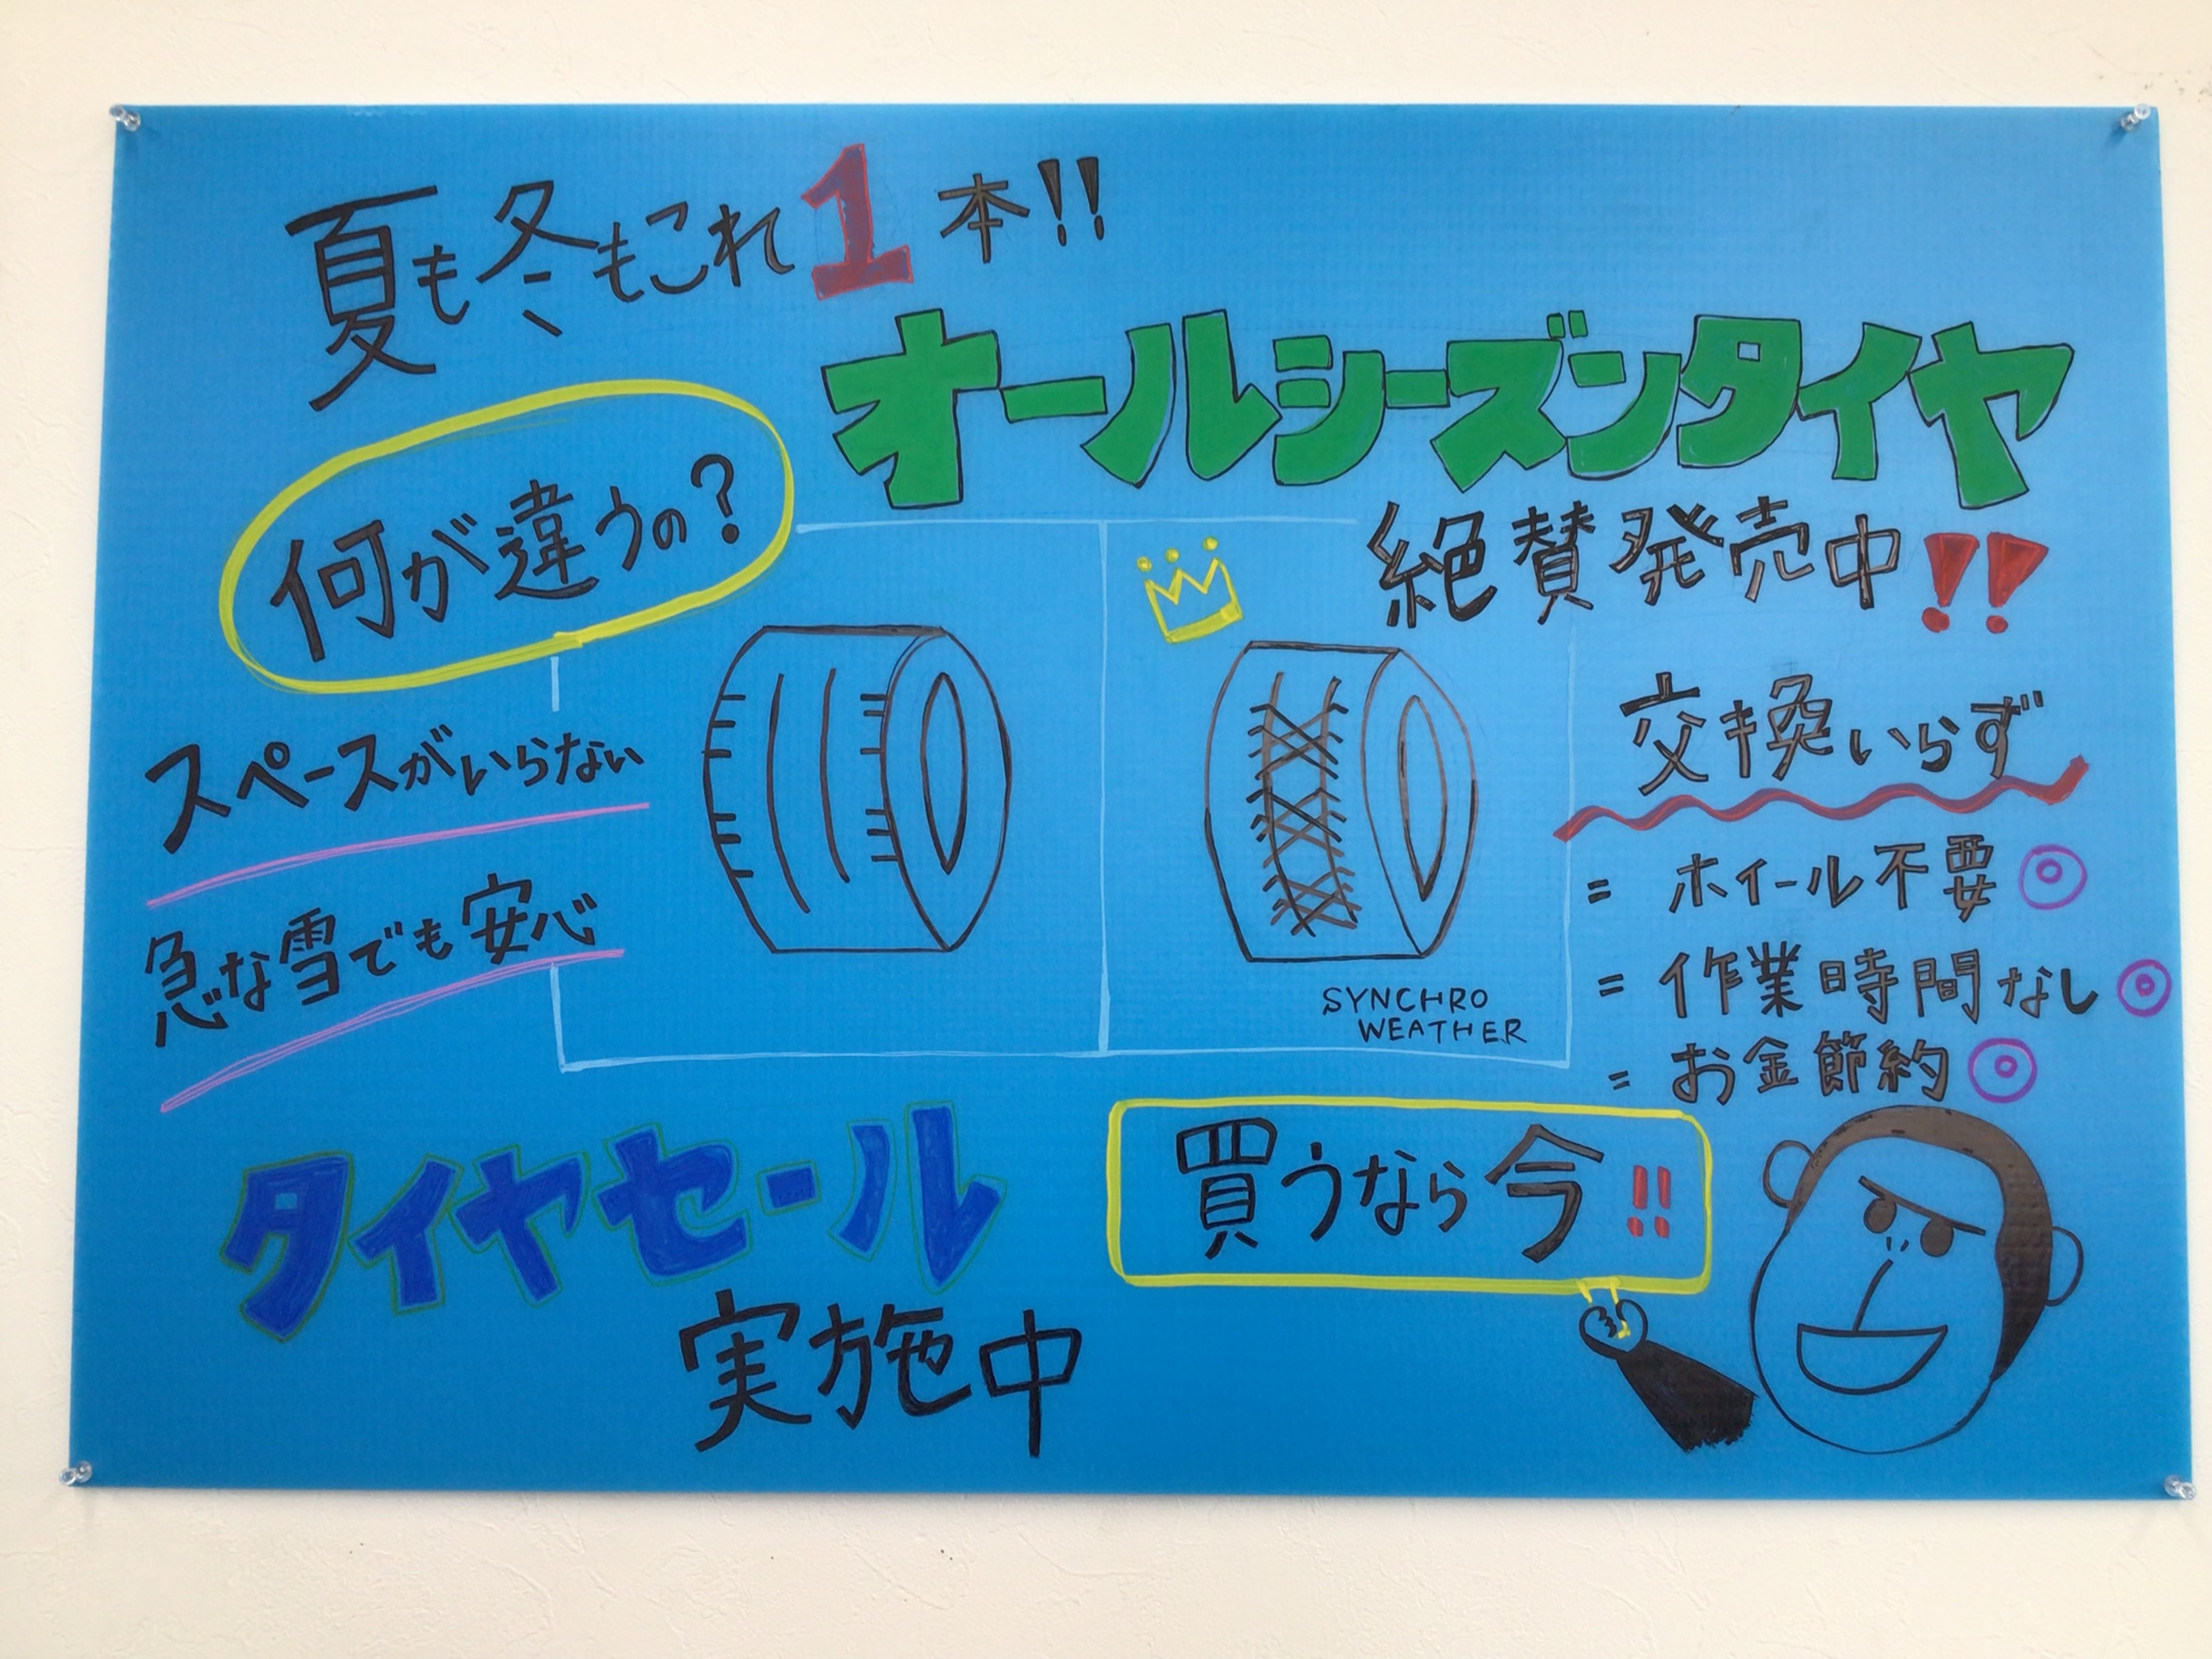 夏も冬もこれ1本!!
オールシーズンタイヤ
絶賛発売中!!
何が違うの?
スペースがいらない
急な雪でも安心
SYNCHRO
WEATHER
交換いらず
= ホイール不要◎
= 作業時間なし◎
= お金節約◎
タイヤセール
実施中
買うなら今!!